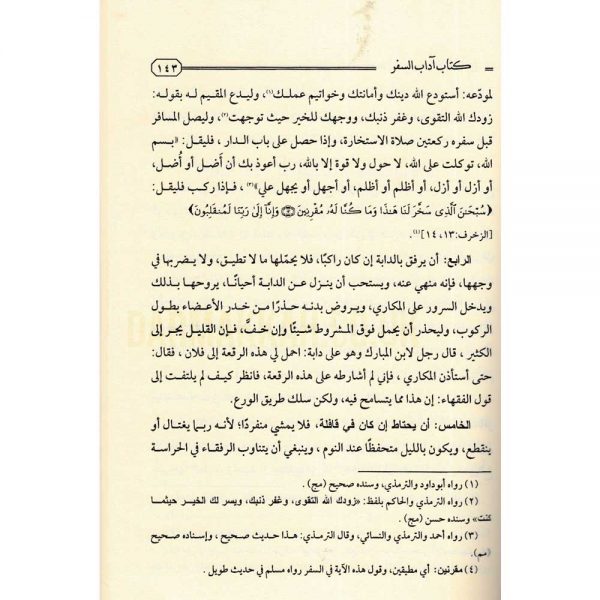 كتاب آداب السفر ١٤٣
لمودّعه: أستودع الله دينك وأمانتك وخواتيم عملك(١)، وليدع المقيم له بقوله:
زودك الله التقوى، وغفر ذنبك، ووجهك للخير حيث توجهت(٢)، وليصل المسافر
قبل سفره ركعتين صلاة الاستخارة، وإذا حصل على باب الدار ، فليقل: «بسم
الله، توكلت على الله، لا حول ولا قوة إلا بالله، رب أعوذ بك أن أَضل أو أُضل،
أو أزل أو أزل، أو أظلم أو أظلم، أو أجهل أو يجهل علي»(٣) ، فإذا ركب فليقل:
﴿سُبْحَٰنَ ٱلَّذِى سَخَّرَ لَنَا هَٰذَا وَمَا كُنَّا لَهُۥ مُقْرِنِينَ ۝ وَإِنَّآ إِلَىٰ رَبِّنَا لَمُنقَلِبُونَ﴾
[الزخرف:١٣، ١٤](٤).
الرابع: أن يرفق بالدابة إن كان راكبًا، فلا يحمّلها ما لا تطيق، ولا يضربها في
وجهها، فإنه منهي عنه، ويستحب أن ينزل عن الدابة أحيانًا، يروحها بذلك
ويدخل السرور على المكاري ، ويروض بدنه حذرًا من خدر الأعضاء بطول
الركوب، وليحذر أن يحمل فوق المشروط شيئًا وإن خفَّ، فإن القليل يجر إلى
الكثير ، قال رجل لابن المبارك وهو على دابة: احمل لي هذه الرقعة إلى فلان ، فقال:
حتى أستأذن المكاري ، فإني لم أشارطه على هذه الرقعة، فانظر كيف لم يلتفت إلى
قول الفقهاء: إن هذا مما يتسامح فيه، ولكن سلك طريق الورع.
الخامس: أن يحتاط إن كان في قافلة، فلا يمشي منفردًا؛ لأنه ربما يغتال أو
ينقطع، ويكون بالليل متحفظًا عند النوم ، وينبغي أن يتناوب الرفقاء في الحراسة
(١) رواه أبو داود والترمذي، وسنده صحيح (مج).
(٢) رواه الترمذي والحاكم بلفظ: «زودك الله التقوى، وغفر ذنبك، ويسر لك الخير حيثما
كنت» وسنده حسن (مج) .
(٣) رواه أحمد والترمذي والنسائي، وقال الترمذي: هذا حديث صحيح ، وإسناده صحيح
(مم).
(٤) مقرنين: أي مطيقين، وقول هذه الآية في السفر رواه مسلم في حديث طويل .